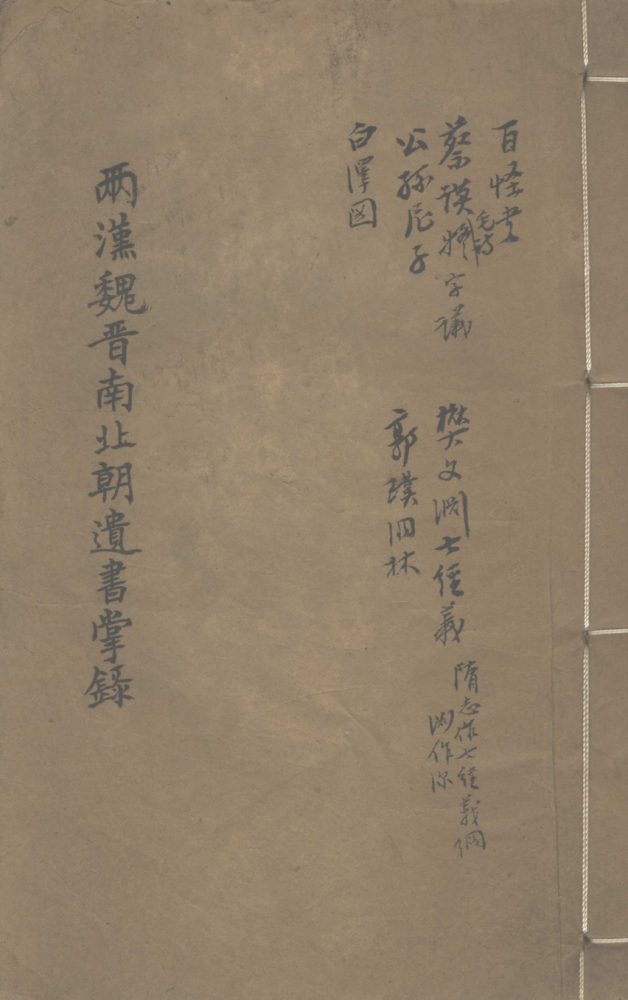 百怪書
蔡謨毛詩疑字議
樊文淵七經義
隋志作七經義綱
淵作深
公孫尼子
郭璞洞林
白澤図
兩漢魏晉南北朝遺書掌錄